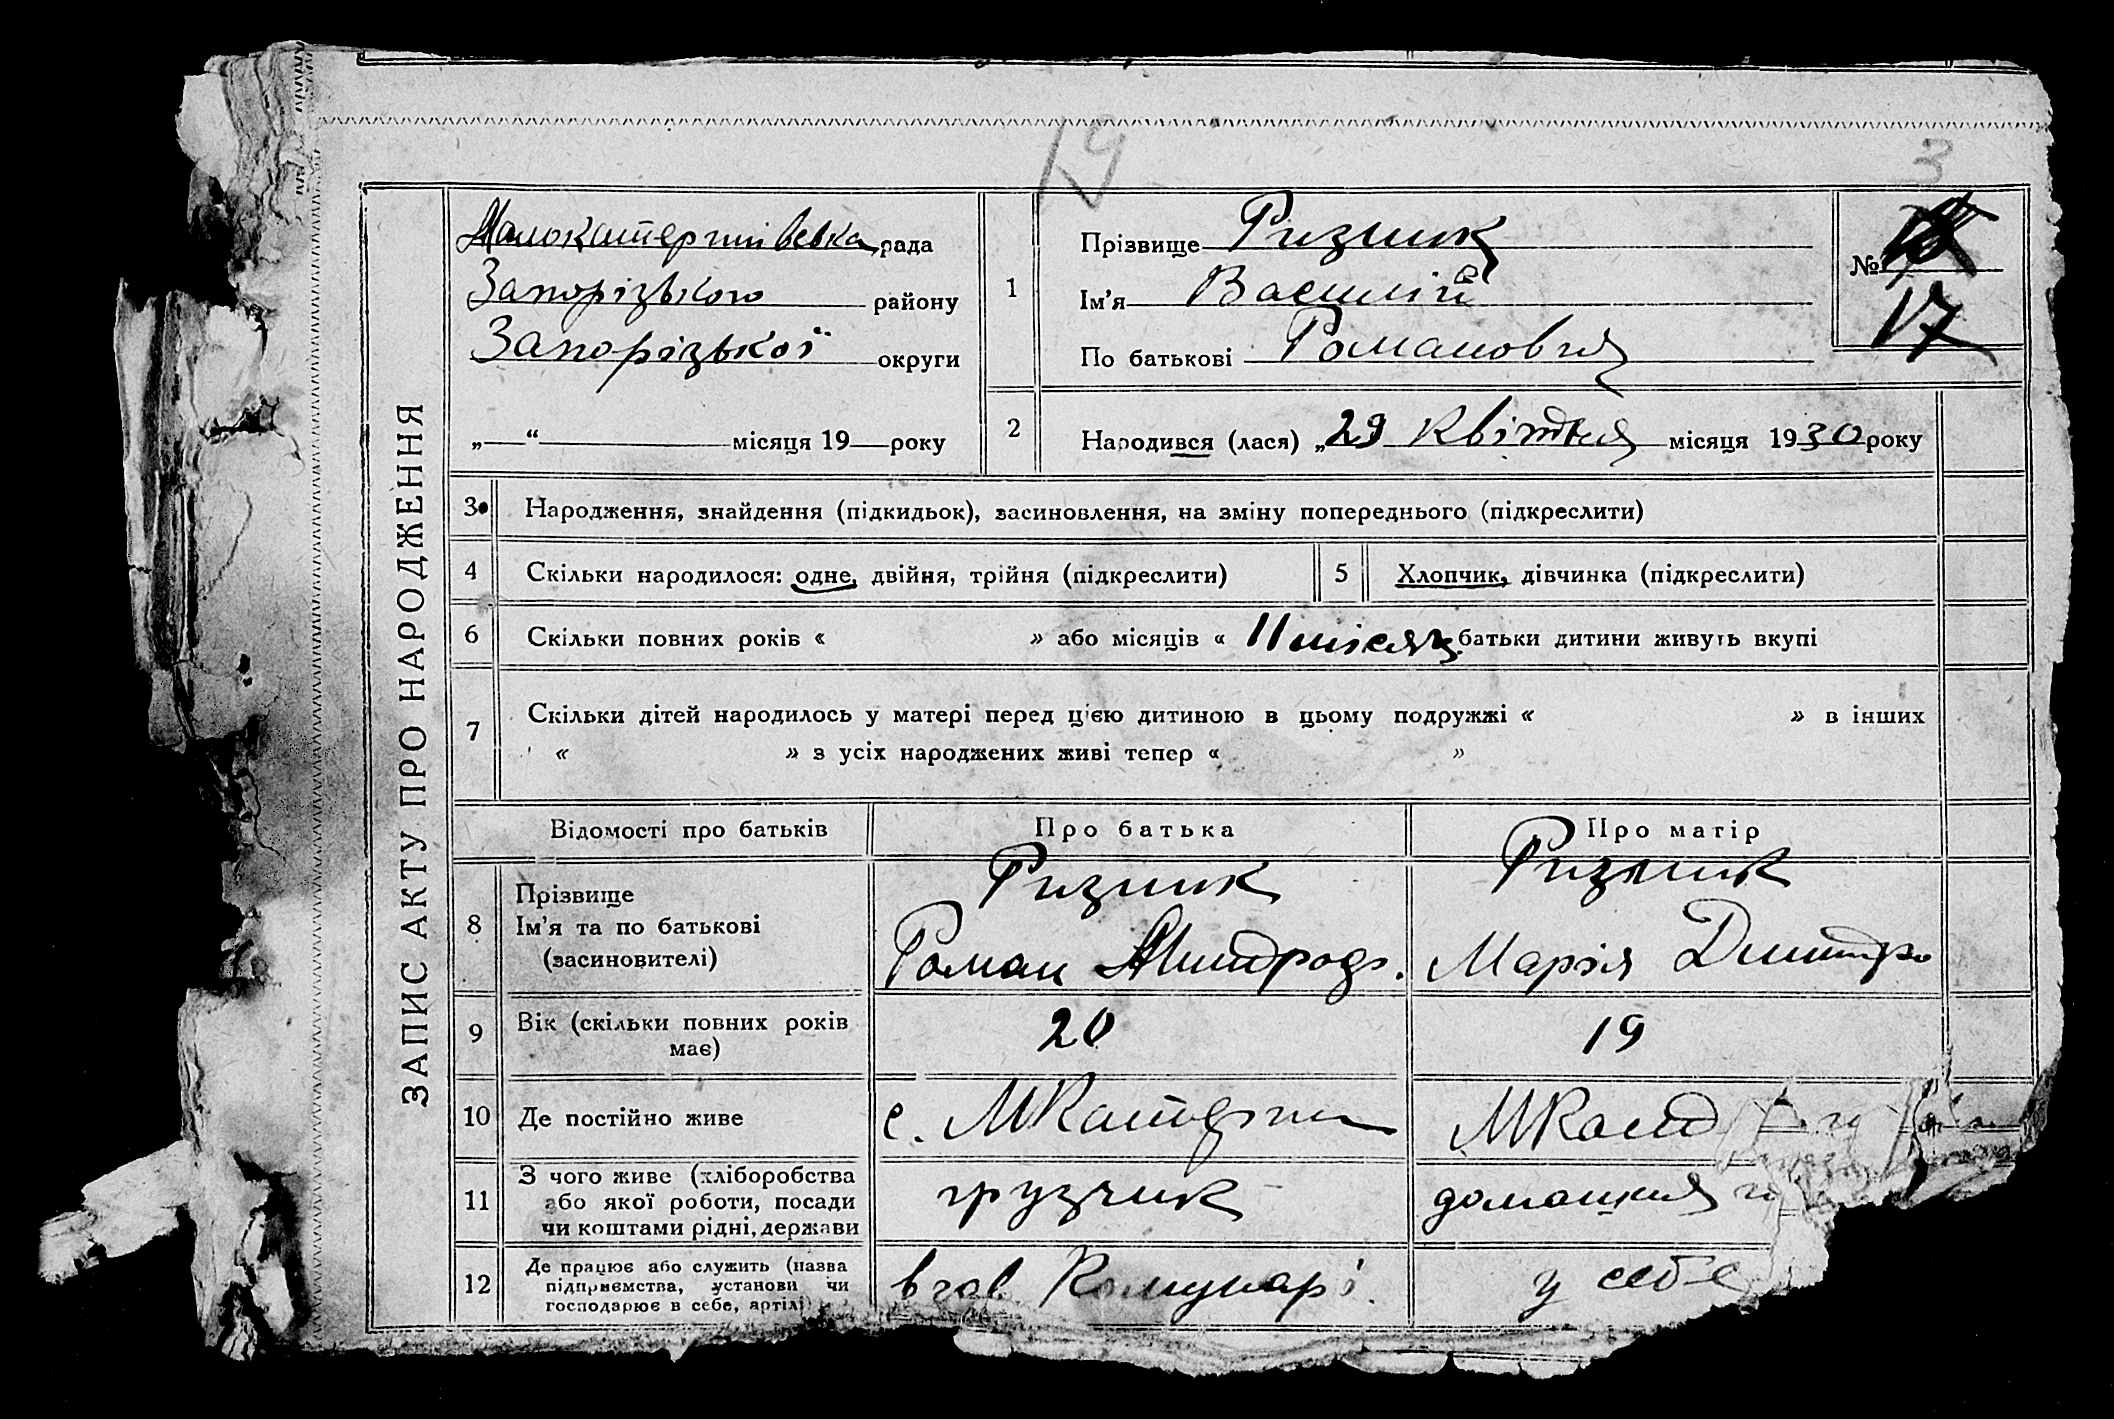 19
3
ЗАПИС АКТУ ПРО НАРОДЖЕННЯ
рада
Запорізького району
Запорізької округи
„ “ місяця 19 року
1
Прізвище Ризник
Ім'я Василій
По батькові Романовия
№
17
2
Народився (лася) „29 Квітня місяця 1930 року
3
Народження, знайдення (підкидьок), засиновлення, на зміну попереднього (підкреслити)
4
Скільки народилося: одне, двійня, трійня (підкреслити)
5
Хлопчик, дівчинка (підкреслити)
6
Скільки повних років « » або місяців « 11 місяц. батьки дитини живуть вкупі
7
Скільки дітей народилось у матері перед цією дитиною в цьому подружжі « » в інших
« » з усіх народжених живі тепер « »
Відомості про батьків
Про батька
Про матір
8
Прізвище
Ім'я та по батькові
(засиновителі)
Ризник
Роман
Ризник
Марія Дмитро
9
Вік (скільки повних років
має)
20
19
10
Де постійно живе
с. МКатерин
МКат
11
З чого живе (хліборобства
або якої роботи, посади
чи коштами рідні, держави
грузчик
домашня
12
Де працює або служить (назва
підприємства, установи чи
господарює в себе, артілі)
в Комунар
у себе